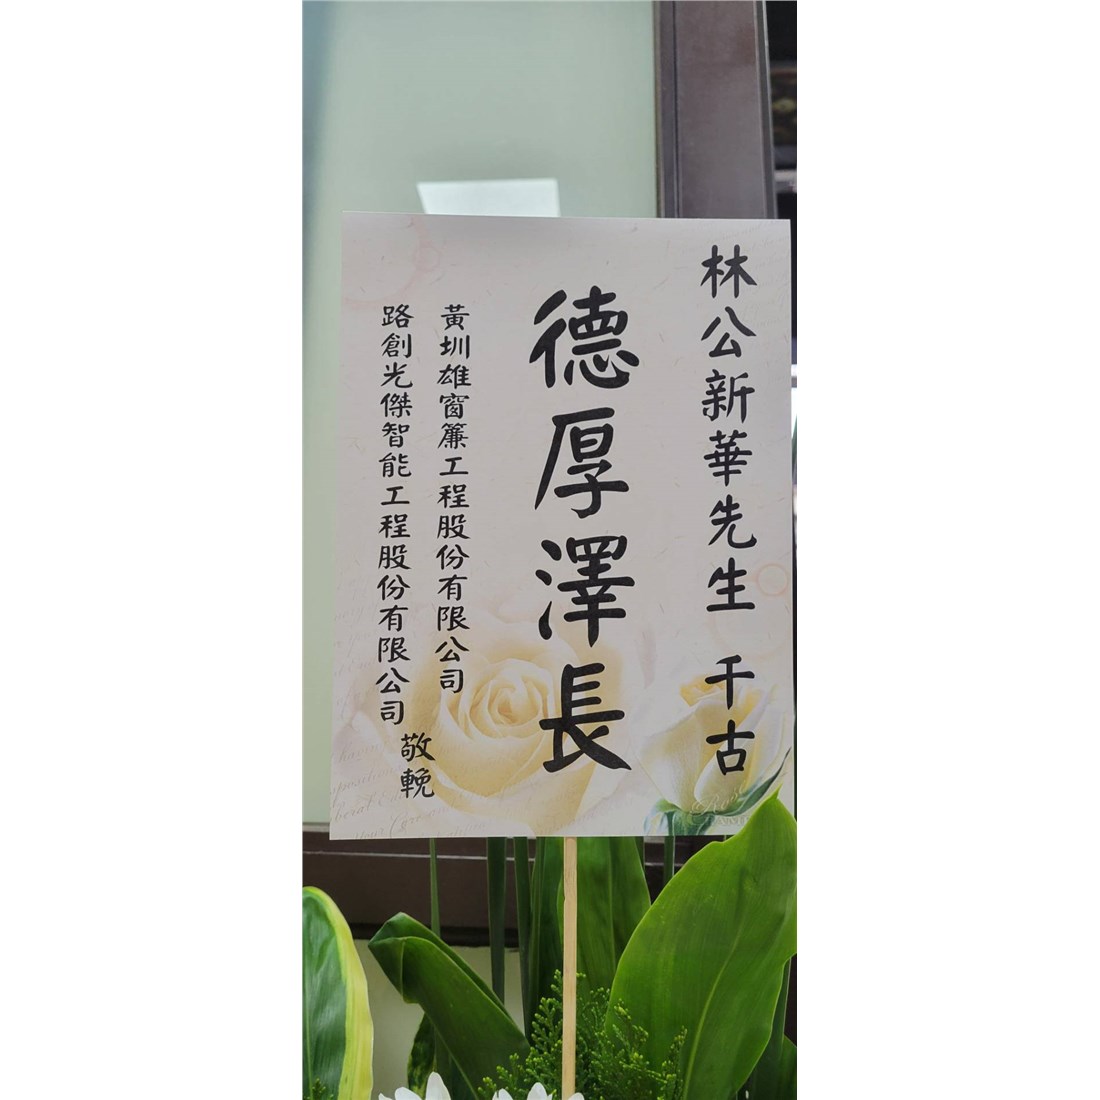 林公新華先生 千古
德厚澤長
黃圳雄窗簾工程股份有限公司
路創光傑智能工程股份有限公司
敬輓